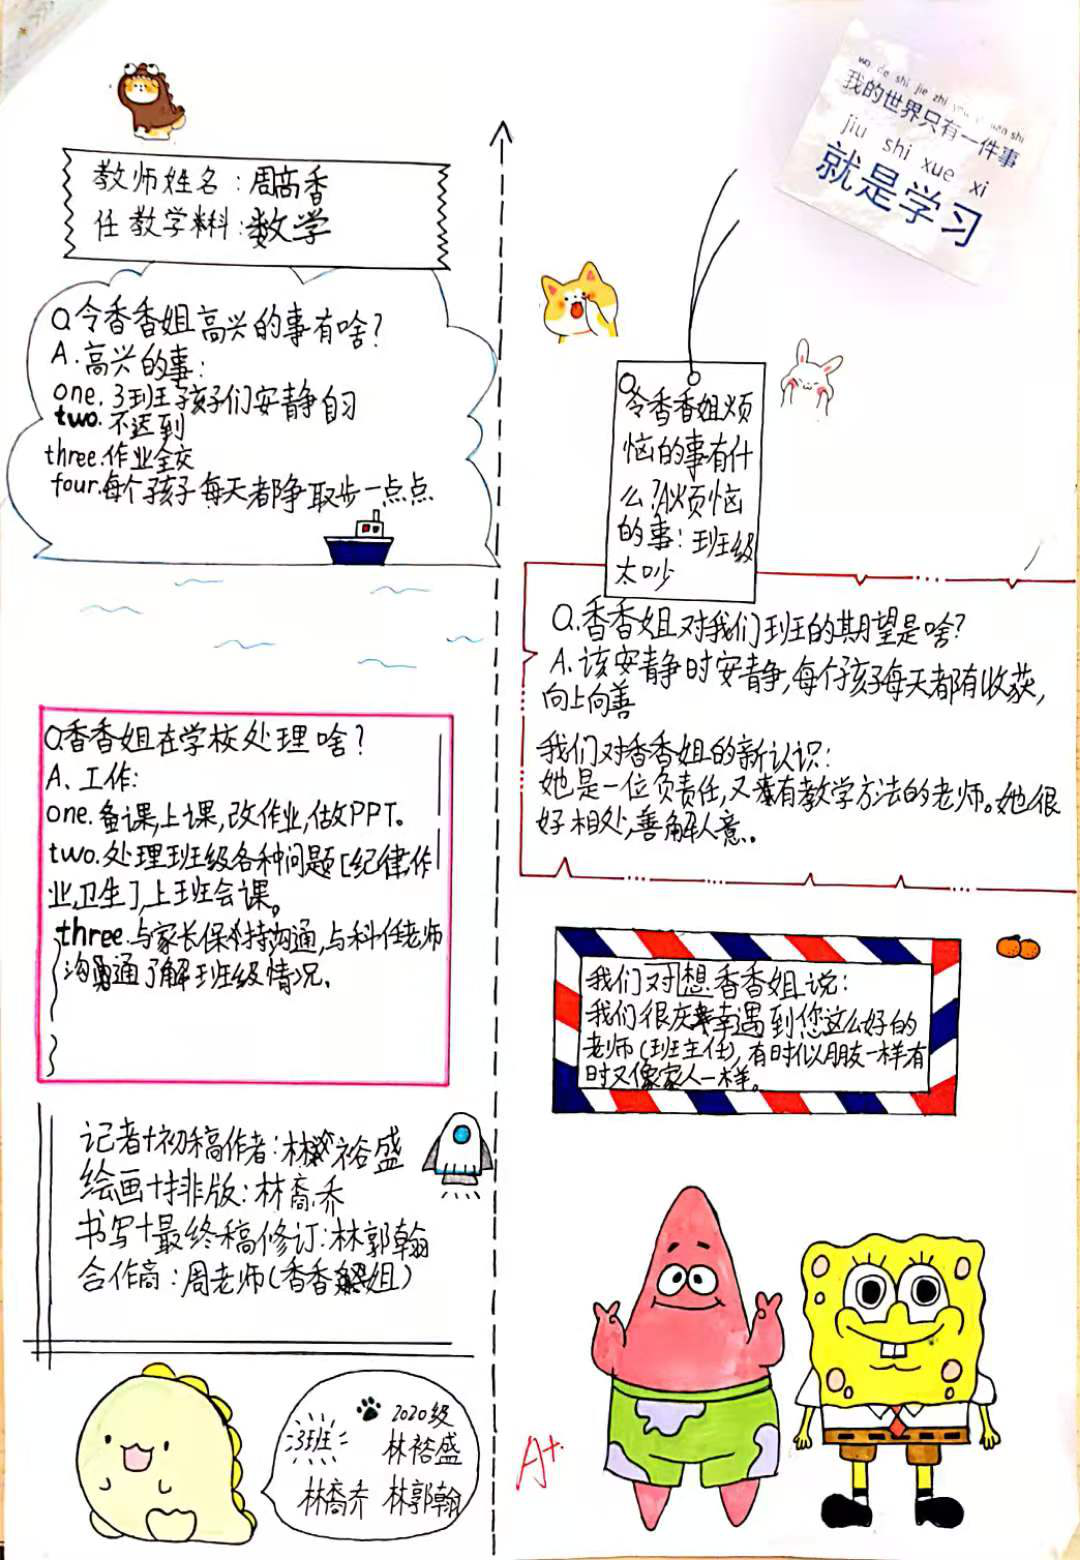 教师姓名：周高香
任教学料：数学
Q令香香姐高兴的事有啥？
A.高兴的事：
one.3班孩子们安静自习
two.不迟到
three.作业全交
four.每个孩子每天都争取步一点点
Q香香姐在学校处理啥？
A.工作：
one.备课,上课,改作业,做PPT。
two.处理班级各种问题[纪律,作
业,卫生],上班会课。
three.与家长保持沟通,与科任老师
沟通了解班级情况.
记者+初稿作者：林裕盛
绘画+排版：林裔乔
书写+最终稿修订：林郭翰
合作商：周老师(香香姐)
3班
2020级
林裕盛
林裔乔 林郭翰
wo de shi jie zhi you shi
我的世界只有一件事
jiu shi xue xi
就是学习
Q令香香姐烦
恼的事有什
么？A烦恼
的事：班级
太吵
Q.香香姐对我们班的期望是啥？
A.该安静时安静,每个孩子每天都有收获,
向上向善
我们对香香姐的新认识：
她是一位负责任,又有教学方法的老师。她很
好相处,善解人意。
我们对想香香姐说：
我们很庆幸遇到您这么好的
老师(班主任),有时似朋友一样有
时又像家人一样。
A+